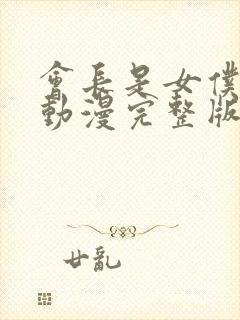 會長是女僕
動漫完整版
廿亂